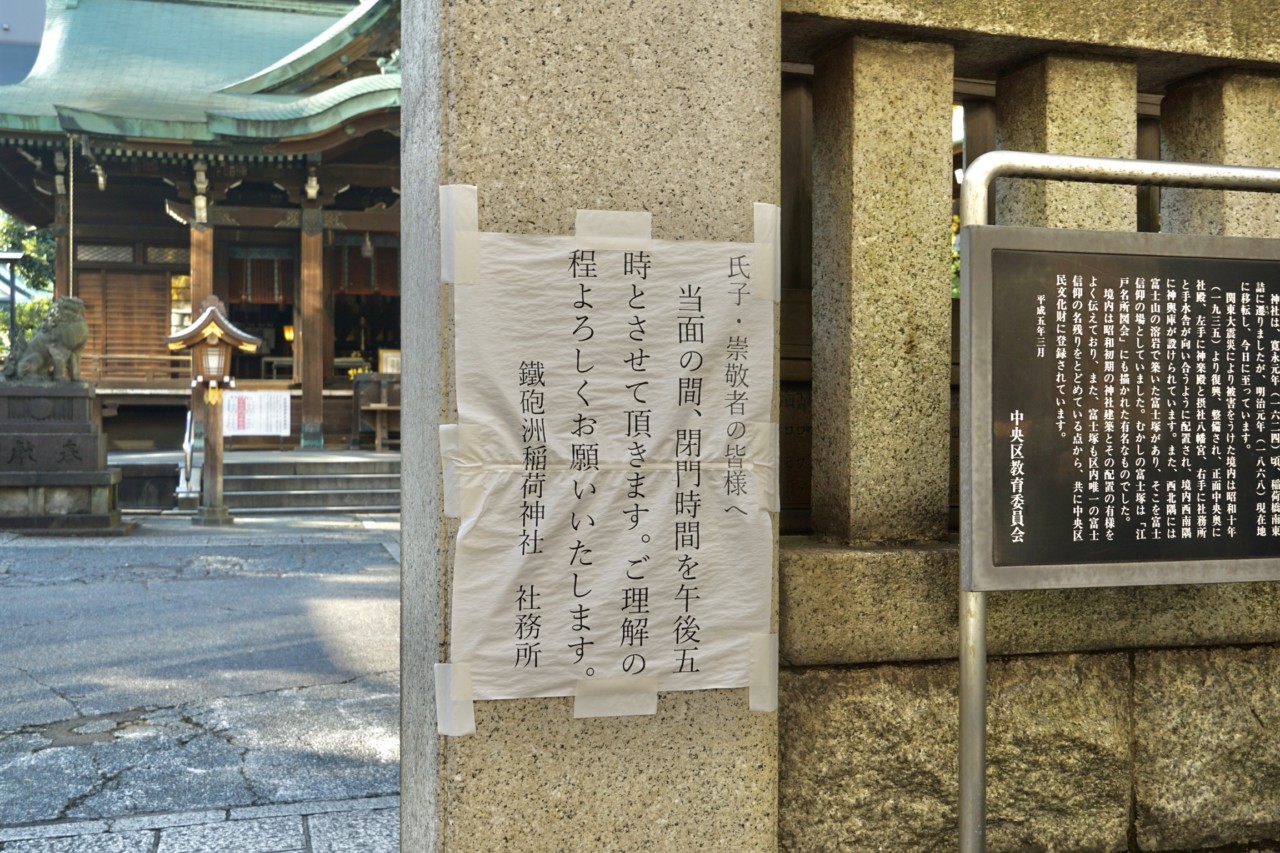 氏子・崇敬者の皆様へ
当面の間、閉門時間を午後五
時とさせて頂きます。ご理解の
程よろしくお願いいたします。
鐵砲洲稲荷神社　社務所
神社は、寛永元年（一六二四）頃、稲荷橋南東
詰に遷りましたが、明治元年（一八六八）現在地
に移転し、今日に至っています。
関東大震災により被害をうけた境内は昭和十年
（一九三五）より復興、整備され、正面中央奥に
社殿、左手に神楽殿と摂社八幡宮、右手に社務所
と手水舎が向い合うように配置され、境内西南隅
に神輿庫が設けられています。また、西北隅には
富士山の溶岩で築いた富士塚があり、そこを富士
信仰の場としていました。むかしの富士塚は「江
戸名所図会」にも描かれた有名なものでした。
境内は昭和初期の神社建築とその配置の有様を
よく伝えており、また、富士塚も区内唯一の富士
信仰の名残りをとどめている点から、共に中央区
民文化財に登録されています。
平成五年三月
中央区教育委員会